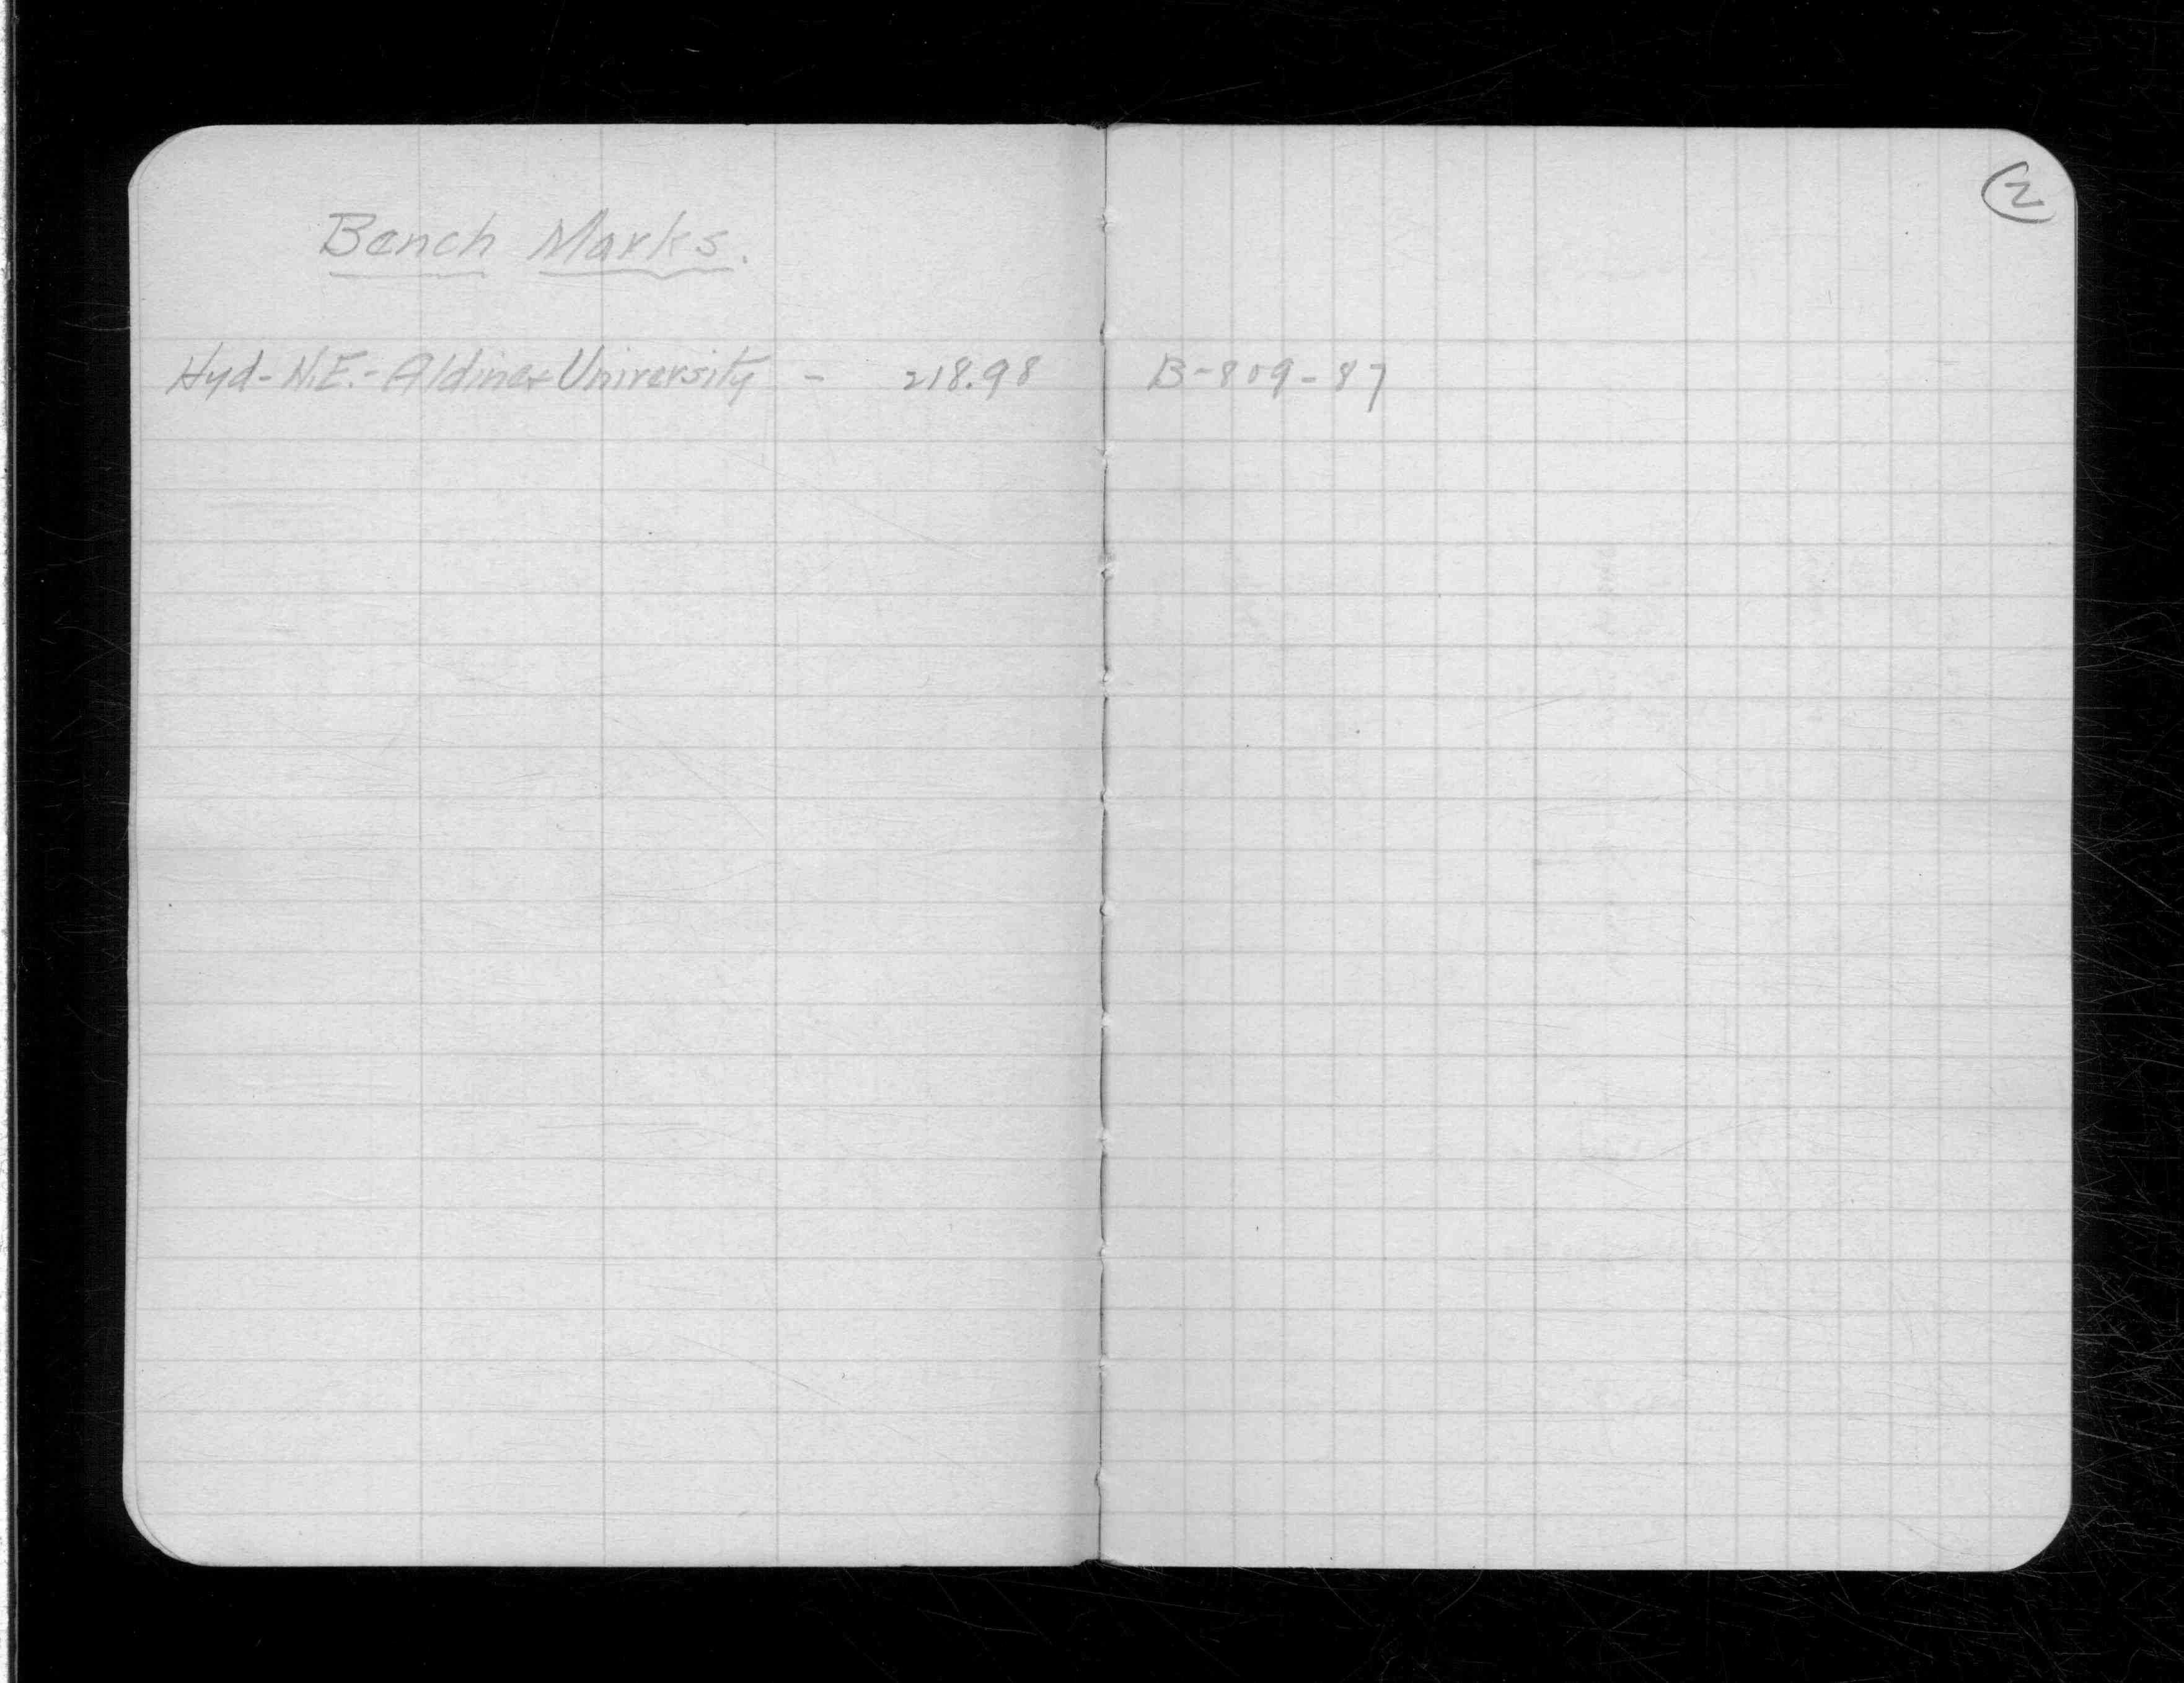 2
Bench Marks.
Hyd-N.E.-Aldine+University - 218.98 B-809-87